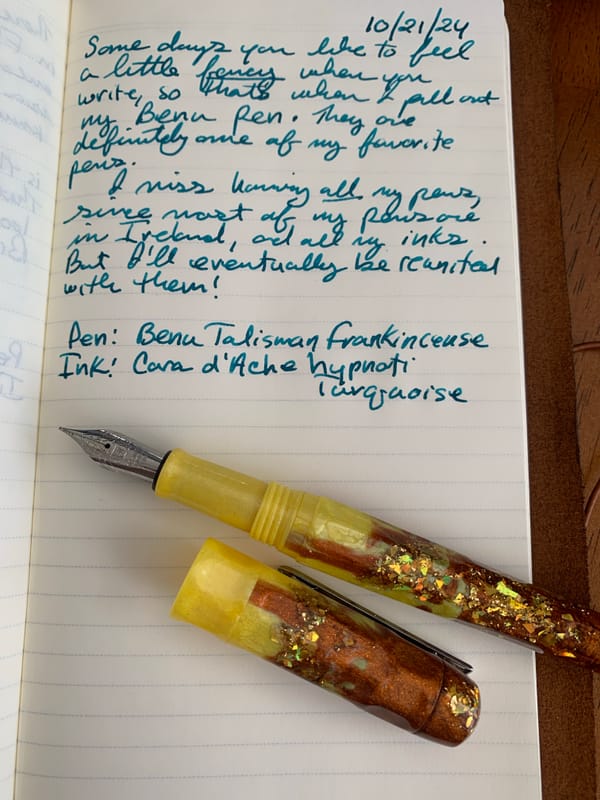 10/21/24
Some days you like to feel
a little fancy when you
write, so that's when I pull out
my Benu pen. They are
definitely one of my favorite
pens.
I miss having all my pens,
since most of my pens are
in Ireland, ad all my inks.
But I'll eventually be reunited
with them!
Pen: Benu Talisman Frankincense
Ink: Cara d'Ache hypnoti
Turquoise